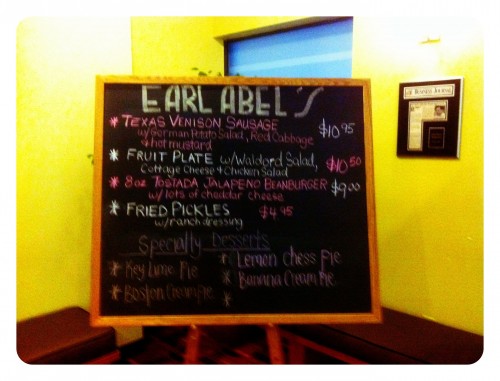 EARL ABEL'S
* TEXAS VENISON SAUSAGE $10.95
w/German Potato Salad, Red Cabbage
& hot mustard
* FRUIT PLATE w/Waldord Salad, $10.50
Cottage Cheese & Chicken Salad
* 8oz TOSTADA JALAPENO BEANBURGER $9.00
w/lots of cheddar cheese
* FRIED PICKLES $4.95
w/ranch dressing
Specialty Desserts
* Key Lime Pie
* Boston Cream Pie
* Lemon Chess Pie
* Banana Cream Pie
*
BUSINESS JOURNAL